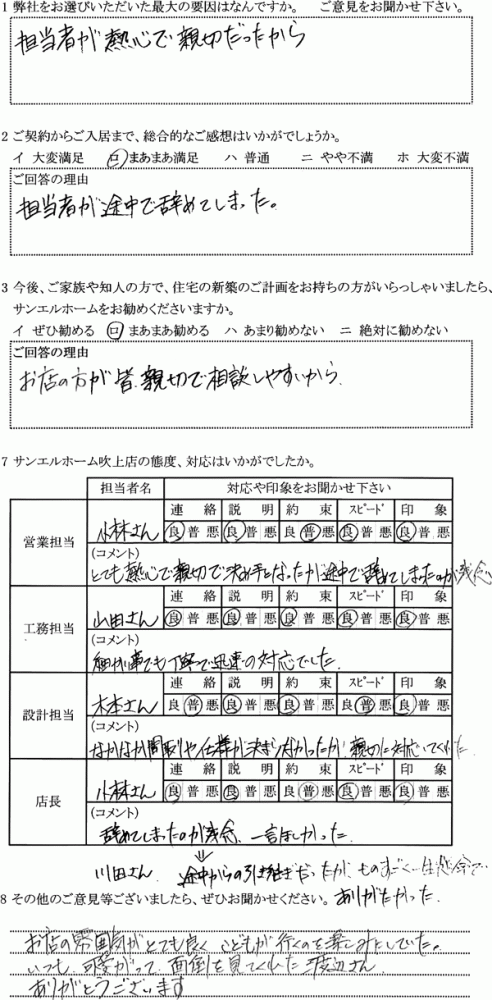 1 弊社をお選びいただいた最大の要因はなんですか。 ご意見をお聞かせ下さい。
担当者が熱心で親切だったから
2 ご契約からご入居まで、総合的なご感想はいかがでしょうか。
イ 大変満足 ロ まあまあ満足 ハ 普通 ニ やや不満 ホ 大変不満
ご回答の理由
担当者が途中で辞めてしまった。
3 今後、ご家族や知人の方で、住宅の新築のご計画をお持ちの方がいらっしゃいましたら、
サンエルホームをお勧めくださいますか。
イ ぜひ勧める ロ まあまあ勧める ハ あまり勧めない ニ 絶対に勧めない
ご回答の理由
お店の方が皆、親切で相談しやすいから、
7 サンエルホーム吹上店の態度、対応はいかがでしたか。
担当者名 対応や印象をお聞かせ下さい
営業担当 小林さん 連絡 説明 約束 スピード 印象
良 普 悪 良 普 悪 良 普 悪 良 普 悪 良 普 悪
(コメント)
とても熱心で親切で決め手となったが途中で辞めてしまったのが残念
工務担当 山田さん 連絡 説明 約束 スピード 印象
良 普 悪 良 普 悪 良 普 悪 良 普 悪 良 普 悪
(コメント)
細か事でも丁寧で迅速の対応でした。
設計担当 木本さん 連絡 説明 約束 スピード 印象
良 普 悪 良 普 悪 良 普 悪 良 普 悪 良 普 悪
(コメント)
なかなか間取りや仕様が決まらなかったが親切に対応してくれた
店長 小林さん 連絡 説明 約束 スピード 印象
良 普 悪 良 普 悪 良 普 悪 良 普 悪 良 普 悪
(コメント)
辞めてしまったのが残念、一言ほしかった。
川田さん 途中からの引き継ぎだったが、ものすごく一生懸命で
ありがたかった。
8 その他のご意見等ございましたら、ぜひお聞かせください。
お店の雰囲気がとても良く こどもが行くのを楽しみにしていた。
いつも 可愛がって 面倒を見てくれた 渡辺さん
ありがとうございます